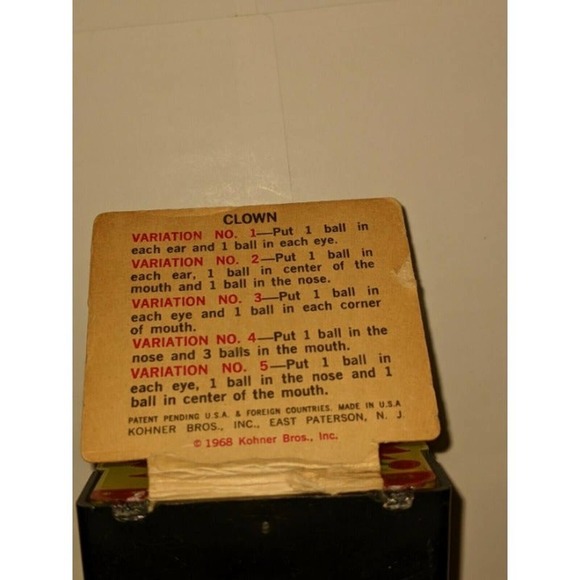 CLOWN
VARIATION NO. 1—Put 1 ball in
each ear and 1 ball in each eye.
VARIATION NO. 2—Put 1 ball in
each ear, 1 ball in center of the
mouth and 1 ball in the nose.
VARIATION NO. 3—Put 1 ball in
each eye and 1 ball in each corner
of mouth.
VARIATION NO. 4—Put 1 ball in the
nose and 3 balls in the mouth.
VARIATION NO. 5—Put 1 ball in
each eye, 1 ball in the nose and 1
ball in center of the mouth.
PATENT PENDING U.S.A. & FOREIGN COUNTRIES. MADE IN U.S.A
KOHNER BROS., INC., EAST PATERSON, N. J.
© 1968 Kohner Bros., Inc.